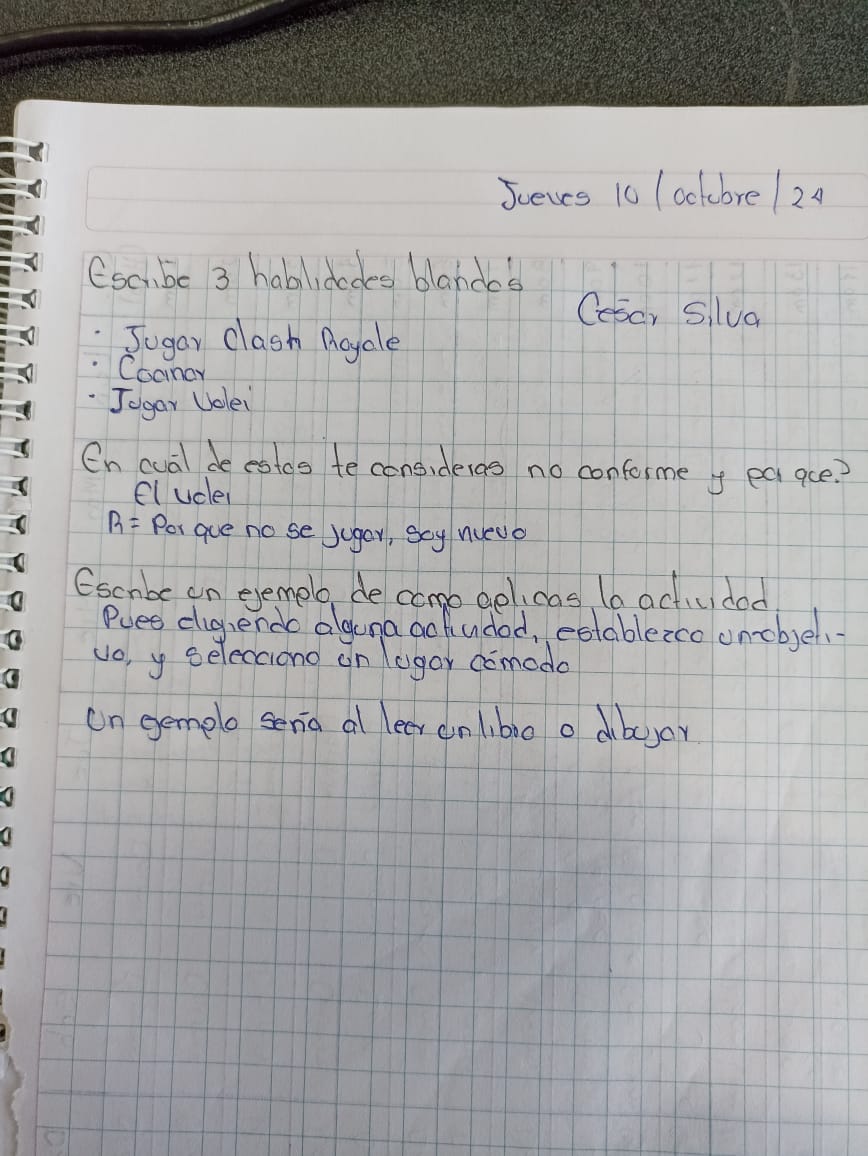 Jueves 10 / octubre / 24
Escribe 3 hablidades blandas
César Silva
· Jugar Clash Royale
· Cocinar
· Jugar Volei
En cuál de estas te consideras no conforme y por que?
El volei
R= Por que no se jugar, soy nuevo
Escribe un ejemplo de como aplicas la actividad
Pues eligiendo alguna actividad, establezco un objeti-
vo, y selecciono un lugar cómodo
Un gemplo sería al leer un libro o dibujar